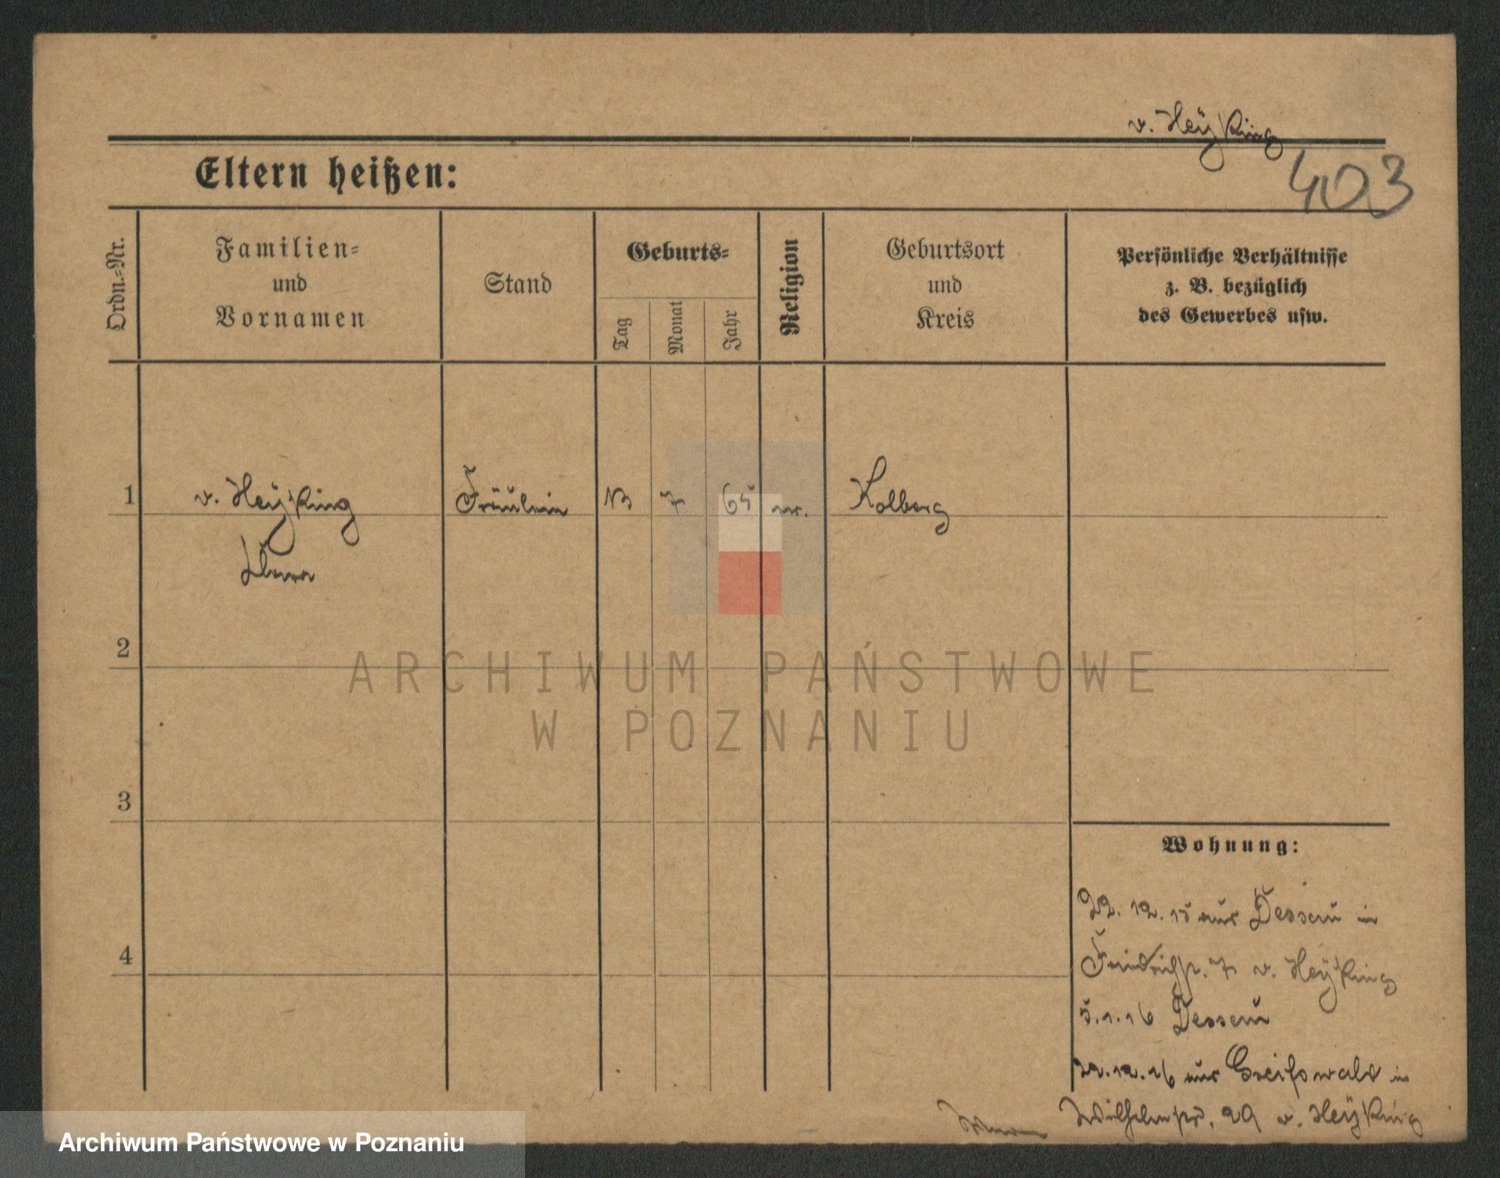 v. Heyking
403
Eltern heißen:
Ordn.=Nr.
Familien=
und
Vornamen
Stand
Geburts=
Tag
Monat
Jahr
Religion
Geburtsort
und
Kreis
Persönliche Verhältnisse
z. B. bezüglich
des Gewerbes usw.
1
v. Heyking
Fräulein
13
7
65
Kolberg
2
3
4
Wohnung:
22. 12. 15 aus Dessau in
7 v. Heyking
5. 1. 16 Dessau
22. 12. 16 aus Greifswald in
Wilhelmstr. 29 v. Heyking
ARCHIWUM PAŃSTWOWE
W POZNANIU
Archiwum Państwowe w Poznaniu